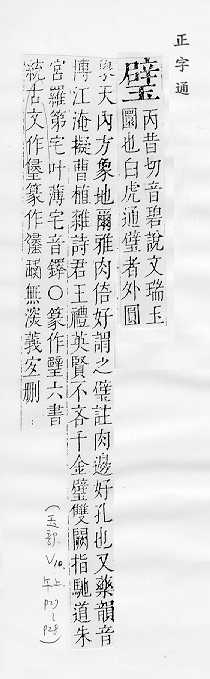 正字通
璧
丙昔切音碧說文瑞玉
圜也白虎通璧者外圓
象天內方象地爾雅肉倍好謂之璧註肉邊好孔也又藥韻音
博江淹擬曹植雜詩君王禮英賢不吝千金璧雙闕指馳道朱
宮羅第宅叶薄宅音鐸○篆作璧六書
統古文作篆作無深義宜刪
(玉部 V10. 午上 P27~P28)